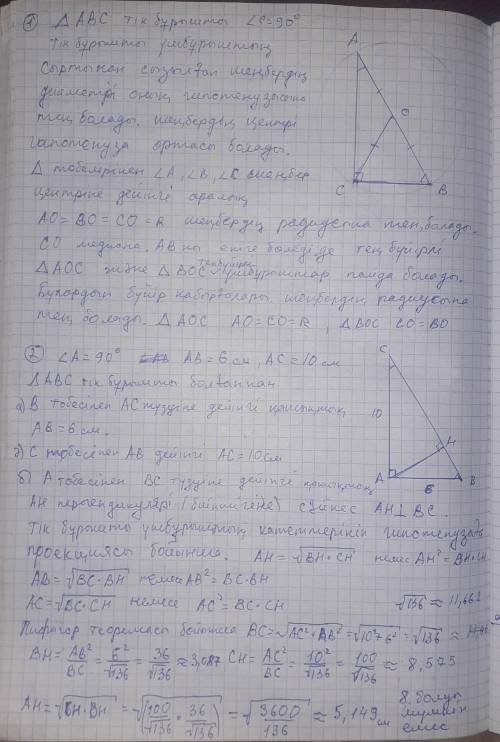 ① △ABC тік бұрышты ∠C=90°
тік бұрышты үшбұрыштың
сыртынан сызылған шеңбердің
диаметрі оның гипотенузасына
тең болады. шеңбердің центрі
гипотенуза ортасы болады.
△ төбелерінен ∠A, ∠B, ∠C шеңбер
центріне дейінгі аралық
AO=BO=CO=R шеңбердің радиусына тең болады.
CO медиана. AB ны екіге бөледі де тең бүйірлі
△AOC және △BOC теңбүйірлі үшбұрыштар пайда болады.
Бұлардың бүйір қабырғалары шеңбердің радиусына
тең болады. △AOC AO=CO=R, △BOC CO=BO
A
O
C
B
② ∠A=90° AB=6см, AC=10см
△ABC тік бұрышты болғаннан
а) B төбесінен AC түзуіне дейінгі қашықтық
AB=6см.
C төбесінен AB дейінгі AC=10см
б) A төбесінен BC түзуіне дейінгі қашықтық
AH перпендикуляры (биіктігіне) сәйкес AH⊥BC.
Тік бұрышты үшбұрыштың катеттерінің гипотенузада
проекциясы бойынша. AH=√BH·CH немесе AH²=BH·CH
AB=√BC·BH немесе AB²=BC·BH
AC=√BC·CH немесе AC²=BC·CH √136≈11,662
Пифагор теоремасы бойынша BC=√AC²+AB²=√10²+6²=√136≈
BH=AB²/BC=6²/√136=36/√136≈3,087 CH=AC²/BC=10²/√136=100/√136≈8,575
AH=√CH·BH=√(100/√136·36/√136)=√3600/136≈5,149см
8, болуы
мүмкін
емес
C
10
H
A
6
B